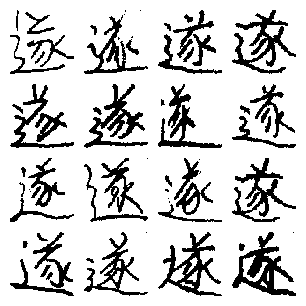 遂遂遂遂
遂遂遂遂
遂遂遂遂
遂遂遂遂